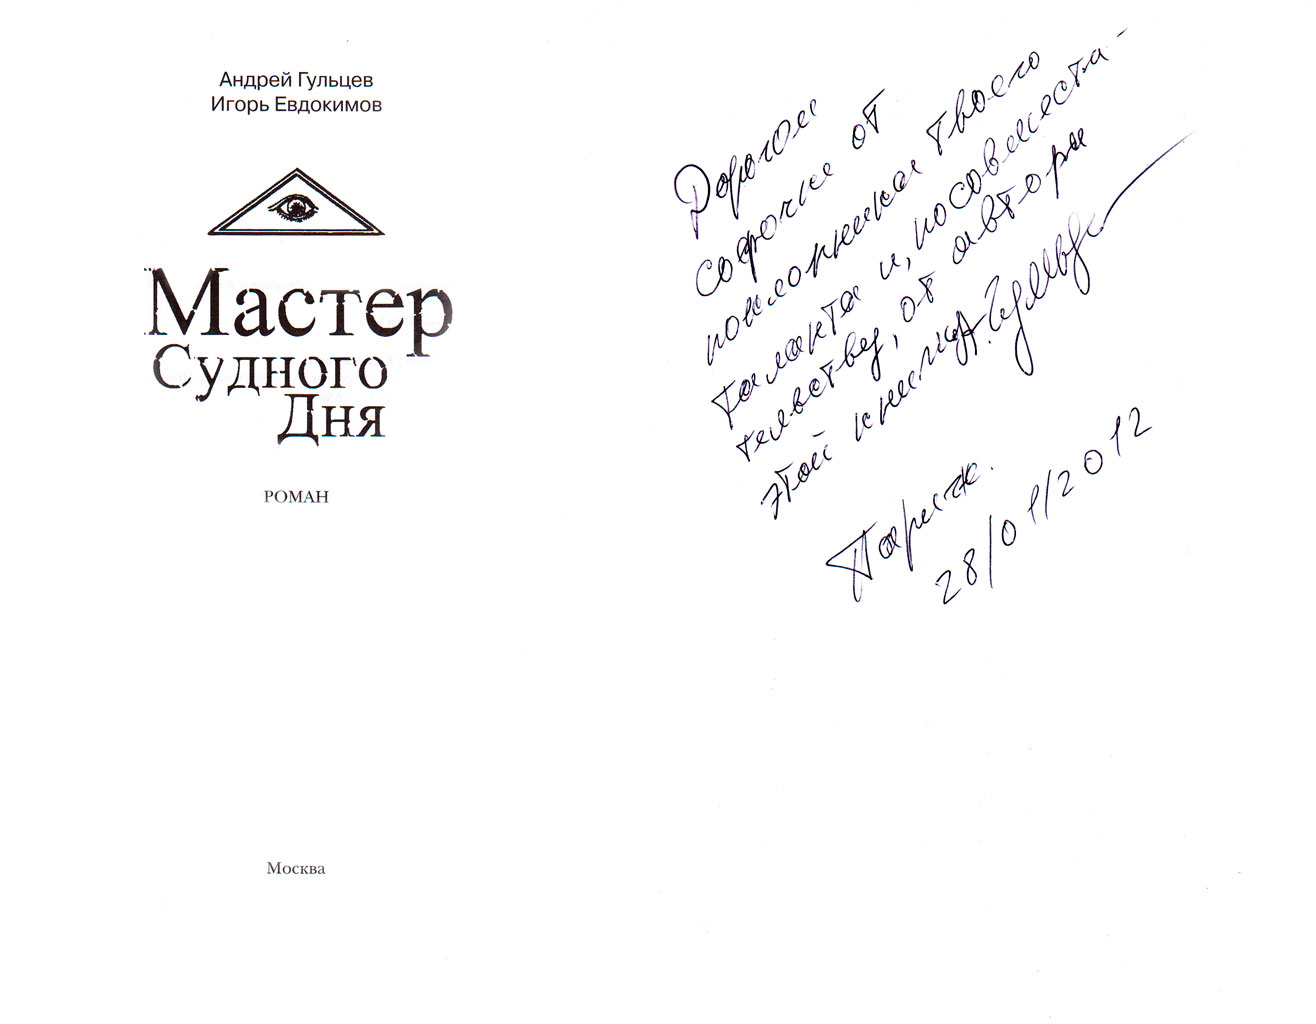 Андрей Гульцев
Игорь Евдокимов
Мастер
Судного
Дня
РОМАН
Москва
Дорогой
Софочке от
поклонника твоего
таланта и, по совмести-
тельству, от автора
этой книги А. Гульцев
Париж.
28/01/2012